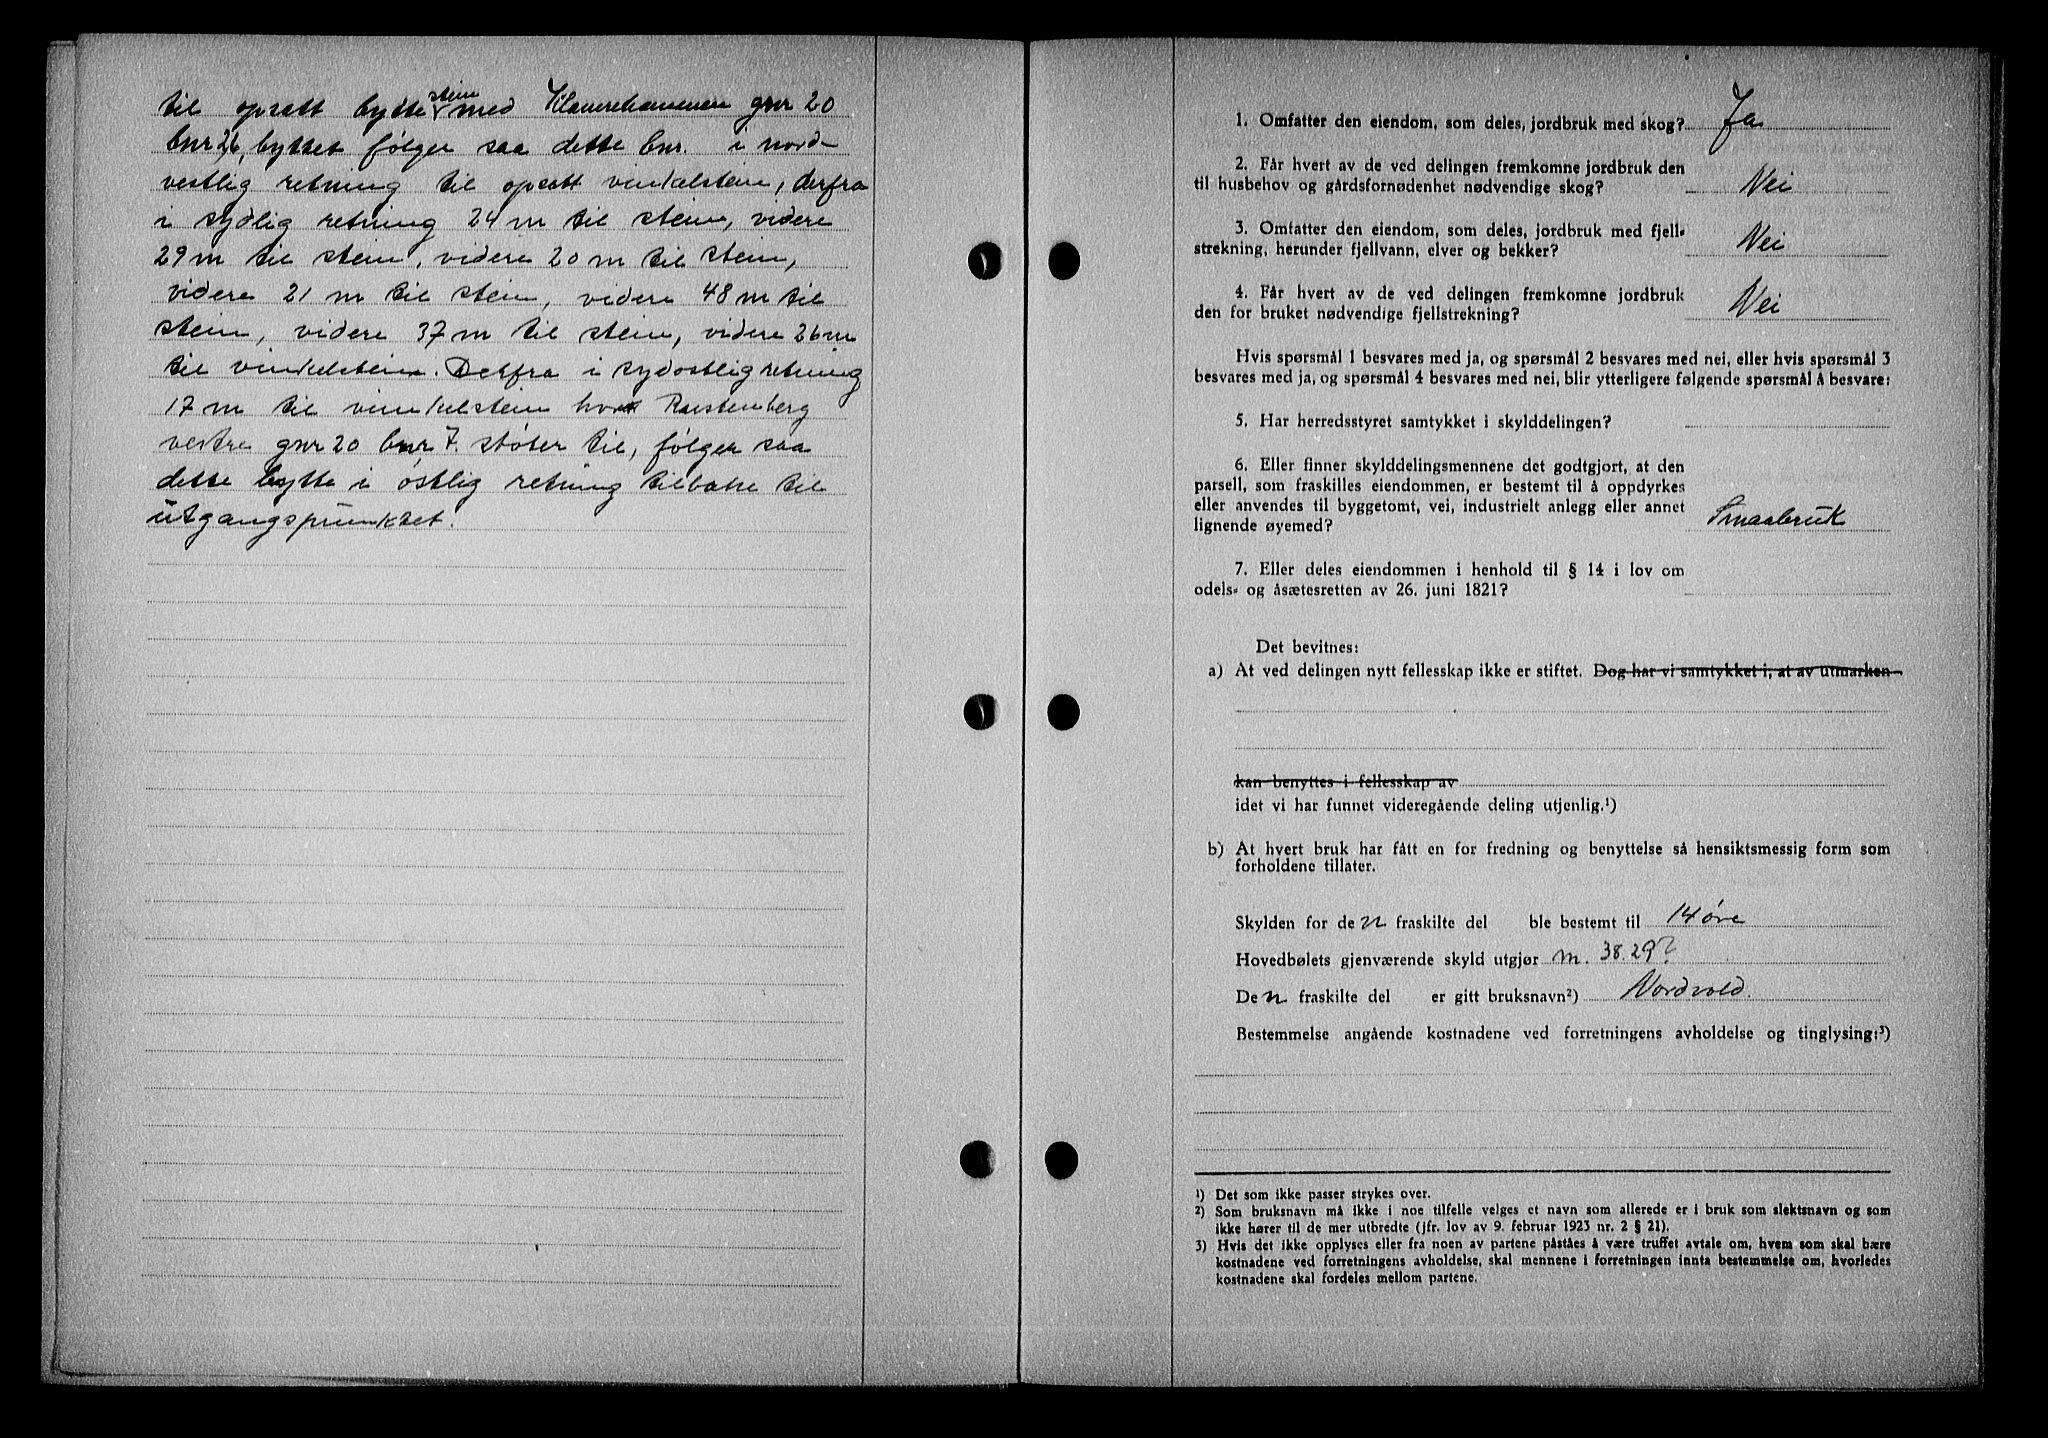 til opsatt bytte stein med Klommehammeren gnr 20
bnr 26, byttet følger saa dette bnr. i nord-
vestlig retning til opsatt vinkelstein, derfra
i sydlig retning 24 m til stein, videre
29 m til stein, videre 20 m til stein,
videre 21 m til stein, videre 48 m til
stein, videre 37 m til stein, videre 26 m
til vinkelstein. Derfra i sydostlig retning
17 m til vinkelstein hvor Rustenberg
vestre gnr 20 bnr 7. støter til, følger saa
dette bytte i østlig retning tilbake til
utgangspunktet.
1. Omfatter den eiendom, som deles, jordbruk med skog? Ja
2. Får hvert av de ved delingen fremkomne jordbruk den
til husbehov og gårdsfornødenhet nødvendige skog? Nei
3. Omfatter den eiendom, som deles, jordbruk med fjell-
strekning, herunder fjellvann, elver og bekker? Nei
4. Får hvert av de ved delingen fremkomne jordbruk
den for bruket nødvendige fjellstrekning? Nei
Hvis spørsmål 1 besvares med ja, og spørsmål 2 besvares med nei, eller hvis spørsmål 3
besvares med ja, og spørsmål 4 besvares med nei, blir ytterligere følgende spørsmål å besvare:
5. Har herredsstyret samtykket i skylddelingen?
6. Eller finner skylddelingsmennene det godtgjort, at den
parsell, som fraskilles eiendommen, er bestemt til å oppdyrkes
eller anvendes til byggetomt, vei, industrielt anlegg eller annet
lignende øyemed? Smaabruk
7. Eller deles eiendommen i henhold til § 14 i lov om
odels- og åsætesretten av 26. juni 1821?
Det bevitnes:
a) At ved delingen nytt fellesskap ikke er stiftet. Dog har vi samtykket i, at av utmarken
kan benyttes i fellesskap av
idet vi har funnet videregående deling utjenlig.¹)
b) At hvert bruk har fått en for fredning og benyttelse så hensiktsmessig form som
forholdene tillater.
Skylden for de n fraskilte del ble bestemt til 14 øre
Hovedbølets gjenværende skyld utgjør m. 38.29?
De n fraskilte del er gitt bruksnavn²) Nordvold.
Bestemmelse angående kostnadene ved forretningens avholdelse og tinglysing:³)
¹) Det som ikke passer strykes over.
²) Som bruksnavn må ikke i noe tilfelle velges et navn som allerede er i bruk som slektsnavn og som
ikke hører til de mer utbredte (jfr. lov av 9. februar 1923 nr. 2 § 21).
3) Hvis det ikke opplyses eller fra noen av partene påståes å være truffet avtale om, hvem som skal bære
kostnadene ved forretningens avholdelse, skal mennene i forretningen innta bestemmelse om, hvorledes
kostnadene skal fordeles mellom partene.